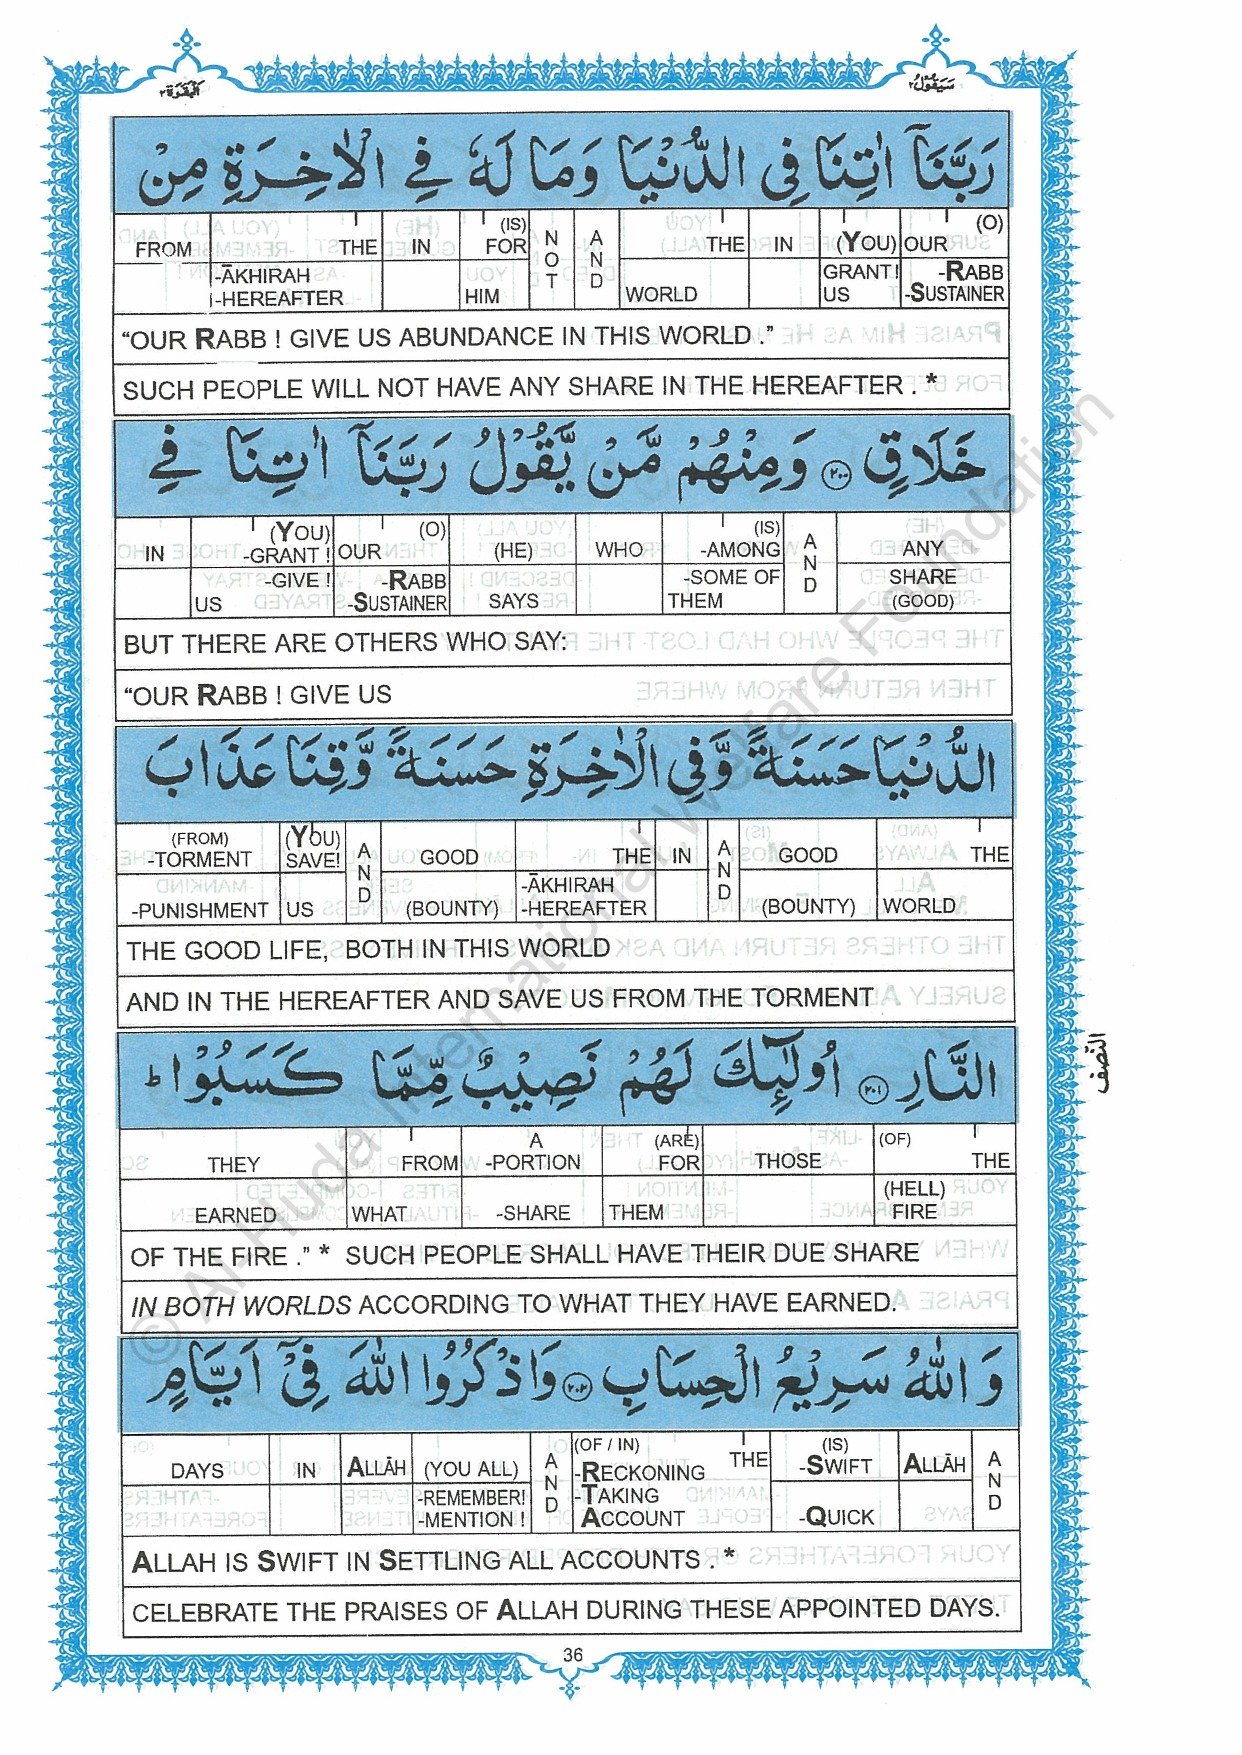 البقرة ٢
سيقول ٢
رَبَّنَآ اٰتِنَا فِى الدُّنْيَا وَمَا لَهٗ فِى الْاٰخِرَةِ مِنْ
FROM THE IN (IS) FOR NOT AND THE IN (YOU) OUR (O)
-ĀKHIRAH GRANT! -RABB
-HEREAFTER HIM WORLD US -SUSTAINER
“OUR RABB ! GIVE US ABUNDANCE IN THIS WORLD .”
SUCH PEOPLE WILL NOT HAVE ANY SHARE IN THE HEREAFTER . *
خَلَاقٍ ۝٢٠٠ وَمِنْهُمْ مَّنْ يَّقُوْلُ رَبَّنَآ اٰتِنَا فِى
(YOU) (O) (IS)
IN -GRANT ! OUR (HE) WHO -AMONG AND ANY
-GIVE ! -RABB -SOME OF SHARE
US -SUSTAINER SAYS THEM (GOOD)
BUT THERE ARE OTHERS WHO SAY:
“OUR RABB ! GIVE US
الدُّنْيَا حَسَنَةً وَّفِى الْاٰخِرَةِ حَسَنَةً وَّقِنَا عَذَابَ
(FROM) (YOU)
-TORMENT SAVE! AND GOOD THE IN AND GOOD THE
-ĀKHIRAH
-PUNISHMENT US (BOUNTY) -HEREAFTER (BOUNTY) WORLD
THE GOOD LIFE, BOTH IN THIS WORLD
AND IN THE HEREAFTER AND SAVE US FROM THE TORMENT
النَّارِ ۝٢٠١ اُولٰٓئِكَ لَهُمْ نَصِيْبٌ مِّمَّا كَسَبُوْا ؕ
النصف
A (ARE) (OF)
THEY FROM -PORTION FOR THOSE THE
(HELL)
EARNED WHAT -SHARE THEM FIRE
OF THE FIRE .” * SUCH PEOPLE SHALL HAVE THEIR DUE SHARE
IN BOTH WORLDS ACCORDING TO WHAT THEY HAVE EARNED.
وَاللّٰهُ سَرِيْعُ الْحِسَابِ ۝٢٠٢ وَاذْكُرُوا اللّٰهَ فِىْٓ اَيَّامٍ
(OF / IN) THE (IS)
DAYS IN ALLĀH (YOU ALL) AND -RECKONING -SWIFT ALLĀH AND
-REMEMBER! -TAKING
-MENTION ! ACCOUNT -QUICK
ALLAH IS SWIFT IN SETTLING ALL ACCOUNTS . *
CELEBRATE THE PRAISES OF ALLAH DURING THESE APPOINTED DAYS.
36
© Al-Huda International Welfare Foundation